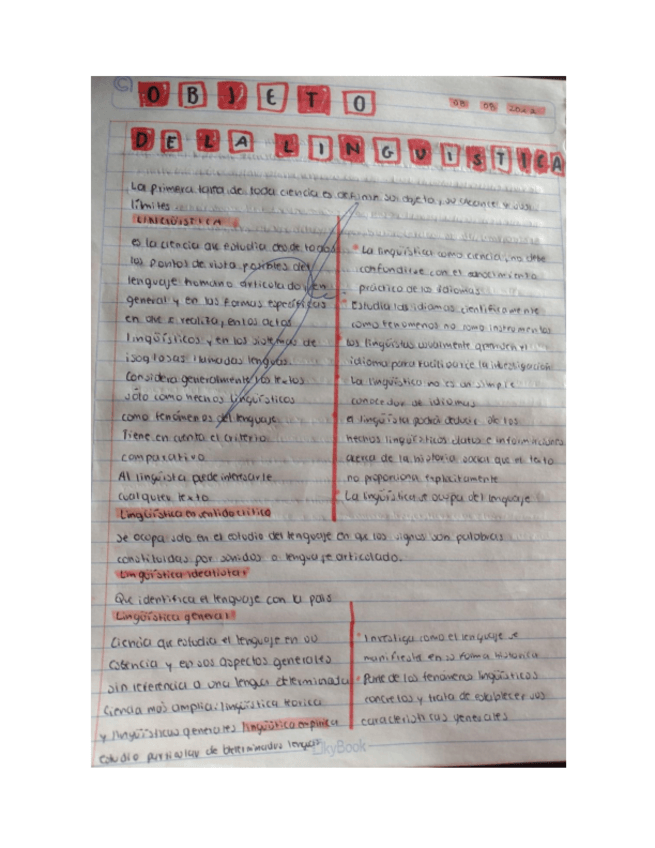 OBJETO
08 08 2022
DE LA LINGUISTICA
La primera tarea de toda ciencia es definir su objeto, su alcance y sus
límites
LINGÜÍSTICA
es la ciencia que estudia desde todos
los puntos de vista posibles del
lenguaje humano articulado, en
general y en las formas específicas
en que se realiza, en los actos
lingüísticos y en los sistemas de
isoglosas llamadas lenguas.
Considera generalmente los textos
sólo como hechos lingüísticos
como fenómenos del lenguaje
Tiene en cuenta el criterio
comparativo
Al lingüista puede interesarle
cualquier texto
La lingüística como ciencia, no debe
confundirse con el conocimiento
práctico de los idiomas
Estudia los idiomas científicamente
como fenómenos no como instrumentos
los lingüistas usualmente aprenden el
idioma para facilitarse la investigación
La lingüística no es un simple
conocedor de idiomas
el lingüista podrá deducir de los
hechos lingüísticos datos e informaciones
acerca de la historia social que el texto
no proporciona explícitamente
La lingüística se ocupa del lenguaje
Lingüística en sentido crítico
se ocupa solo en el estudio del lenguaje en que los signos son palabras
constituidas por sonidos o lenguaje articulado.
Lingüística idealista
Que identifica el lenguaje con la
Lingüística general
Ciencia que estudia el lenguaje en su
esencia y en sus aspectos generales
sin referencia a una lengua determinada
Ciencia más amplia: lingüística teórica
y lingüísticas generales lingüística empírica
estudio particular de determinadas lenguas
Investiga como el lenguaje se
manifiesta en su forma histórica
Parte de los fenómeno lingüísticos
concretos y trata de establecer sus
características generales
SkyBook